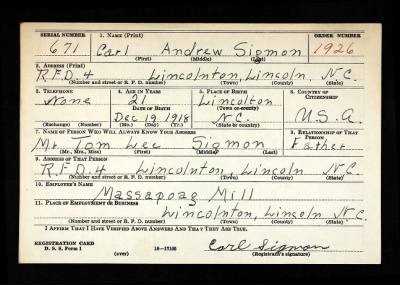 SERIAL NUMBER 1. NAME (Print) ORDER NUMBER
671 Carl Andrew Sigmon 1926
(First) (Middle) (Last)
2. ADDRESS (Print)
R.F.D. 4 Lincolnton, Lincoln, N.C.
(Number and street or R. F. D. number) (Town) (County) (State)
3. TELEPHONE 4. AGE IN YEARS 5. PLACE OF BIRTH 6. COUNTRY OF CITIZENSHIP
None 21 Lincolton
DATE OF BIRTH (Town or county)
Dec 19 1918 N.C. U.S.A.
(Exchange) (Number) (Mo.) (Day) (Yr.) (State or country)
7. NAME OF PERSON WHO WILL ALWAYS KNOW YOUR ADDRESS 8. RELATIONSHIP OF THAT PERSON
Mr. Tom Lee Sigmon Father
(Mr., Mrs., Miss) (First) (Middle) (Last)
9. ADDRESS OF THAT PERSON
R.F.D. 4 Lincolnton, Lincoln N.C.
(Number and street or R. F. D. number) (Town) (County) (State)
10. EMPLOYER'S NAME
Massapoag Mill
11. PLACE OF EMPLOYMENT OR BUSINESS
Lincolnton, Lincoln N.C.
(Number and street or R. F. D. number) (Town) (County) (State)
I AFFIRM THAT I HAVE VERIFIED ABOVE ANSWERS AND THAT THEY ARE TRUE.
REGISTRATION CARD
D. S. S. Form 1 16-17105 Carl Sigmon
(over) (Registrant's signature)